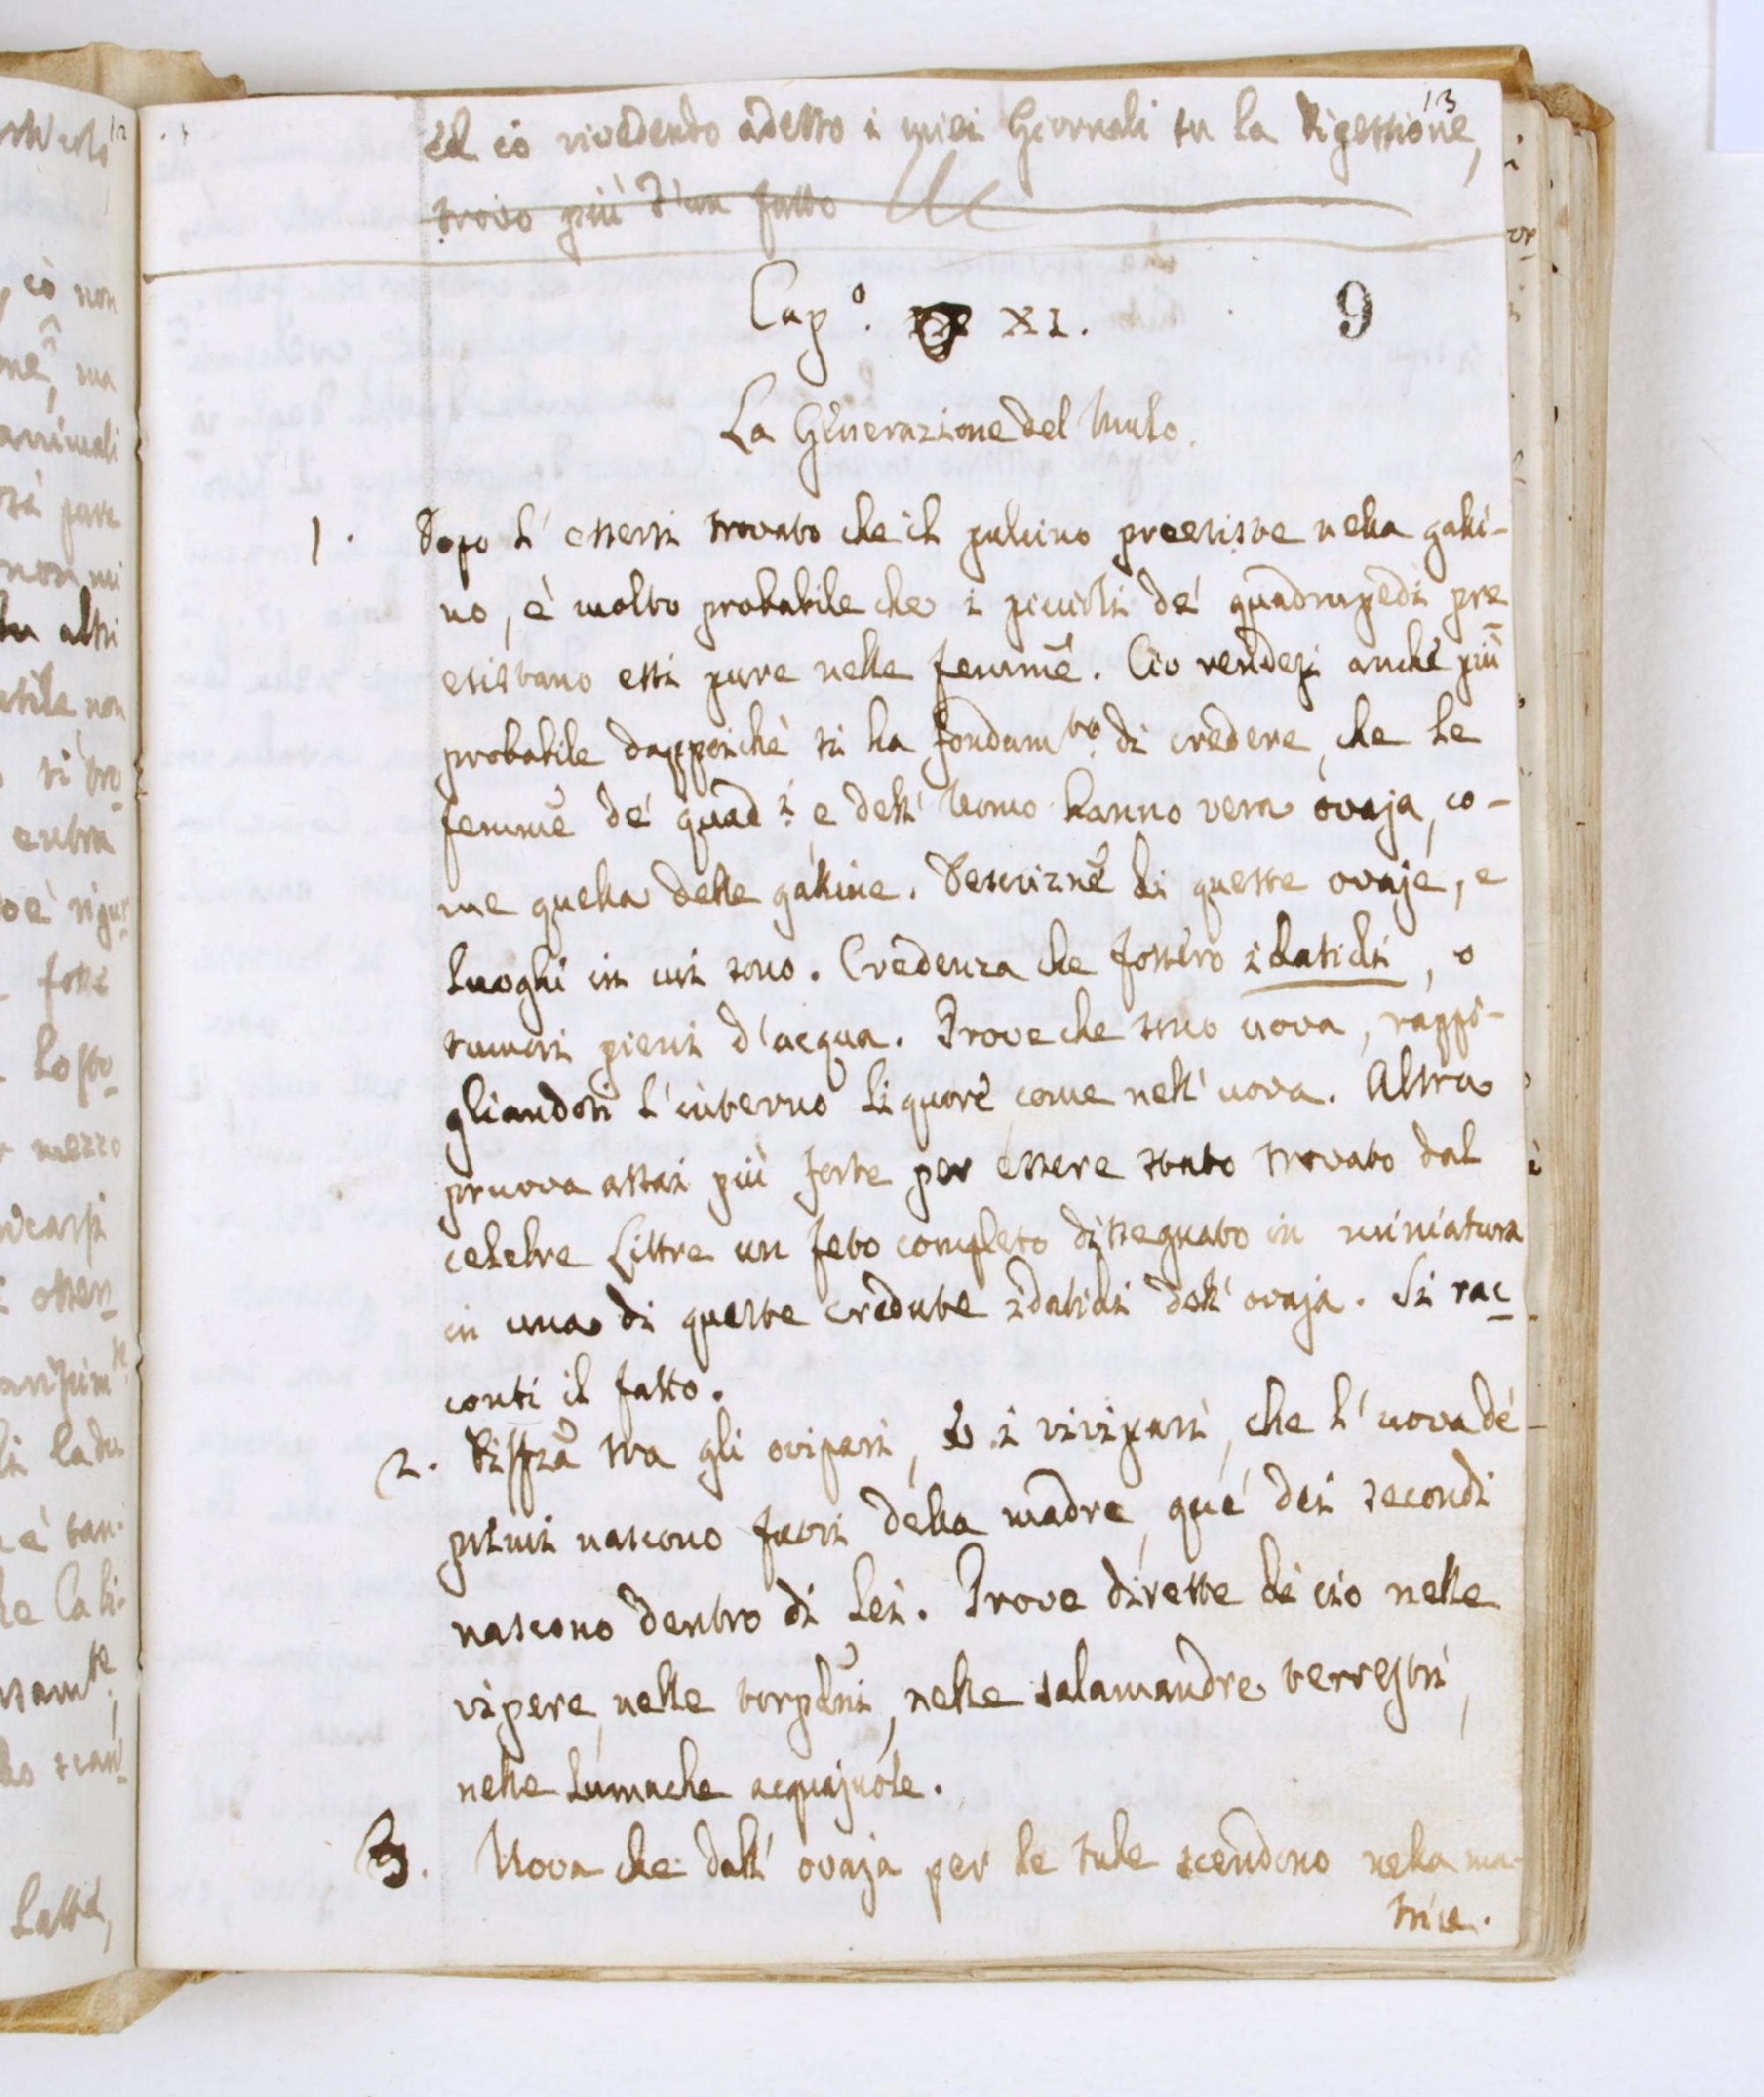 13
ed io rivedendo adesso i miei Giornali su la Digestione,
trovo più d'un fatto
Cap.º XI.
9
La Generazione del Mulo.
1. Dopo l'essersi trovato che il pulcino preesiste nella galli-
na, è molto probabile che i piccioli de' quadrupedi pre
esistano essi pure nelle femmē. Ciò rendesi anche più
probabile dappoichè si ha fondam.to di credere, che le
femmē de' quad.i e dell'Uomo hanno vera ovaja, co-
me quella delle galline. Descriznē di queste ovaje, e
luoghi in cui sono. Credenza che fossero idatidi, o
tumori pieni d'acqua. Prove che sono uova, rappi-
gliandosi l'interno liquore come nell'uova. Altra
pruova assai più forte per essere stato trovato dal
celebre Littre un feto completo dissegnato in miniatura
in una di queste credute idatidi dell'ovaja. Si rac
conti il fatto.
2. Diffzā tra gli ovipari, e i vivipari, che l'uova de'
primi nascono fuori della madre, que' dei secondi
nascono dentro di lei. Prove dirette di ciò nelle
vipere, nelle torpedini, nelle salamandre terrestri,
nelle lumache acquajuole.
3. Uova che dall'ovaja per le tube scendono nella ma-
trice.